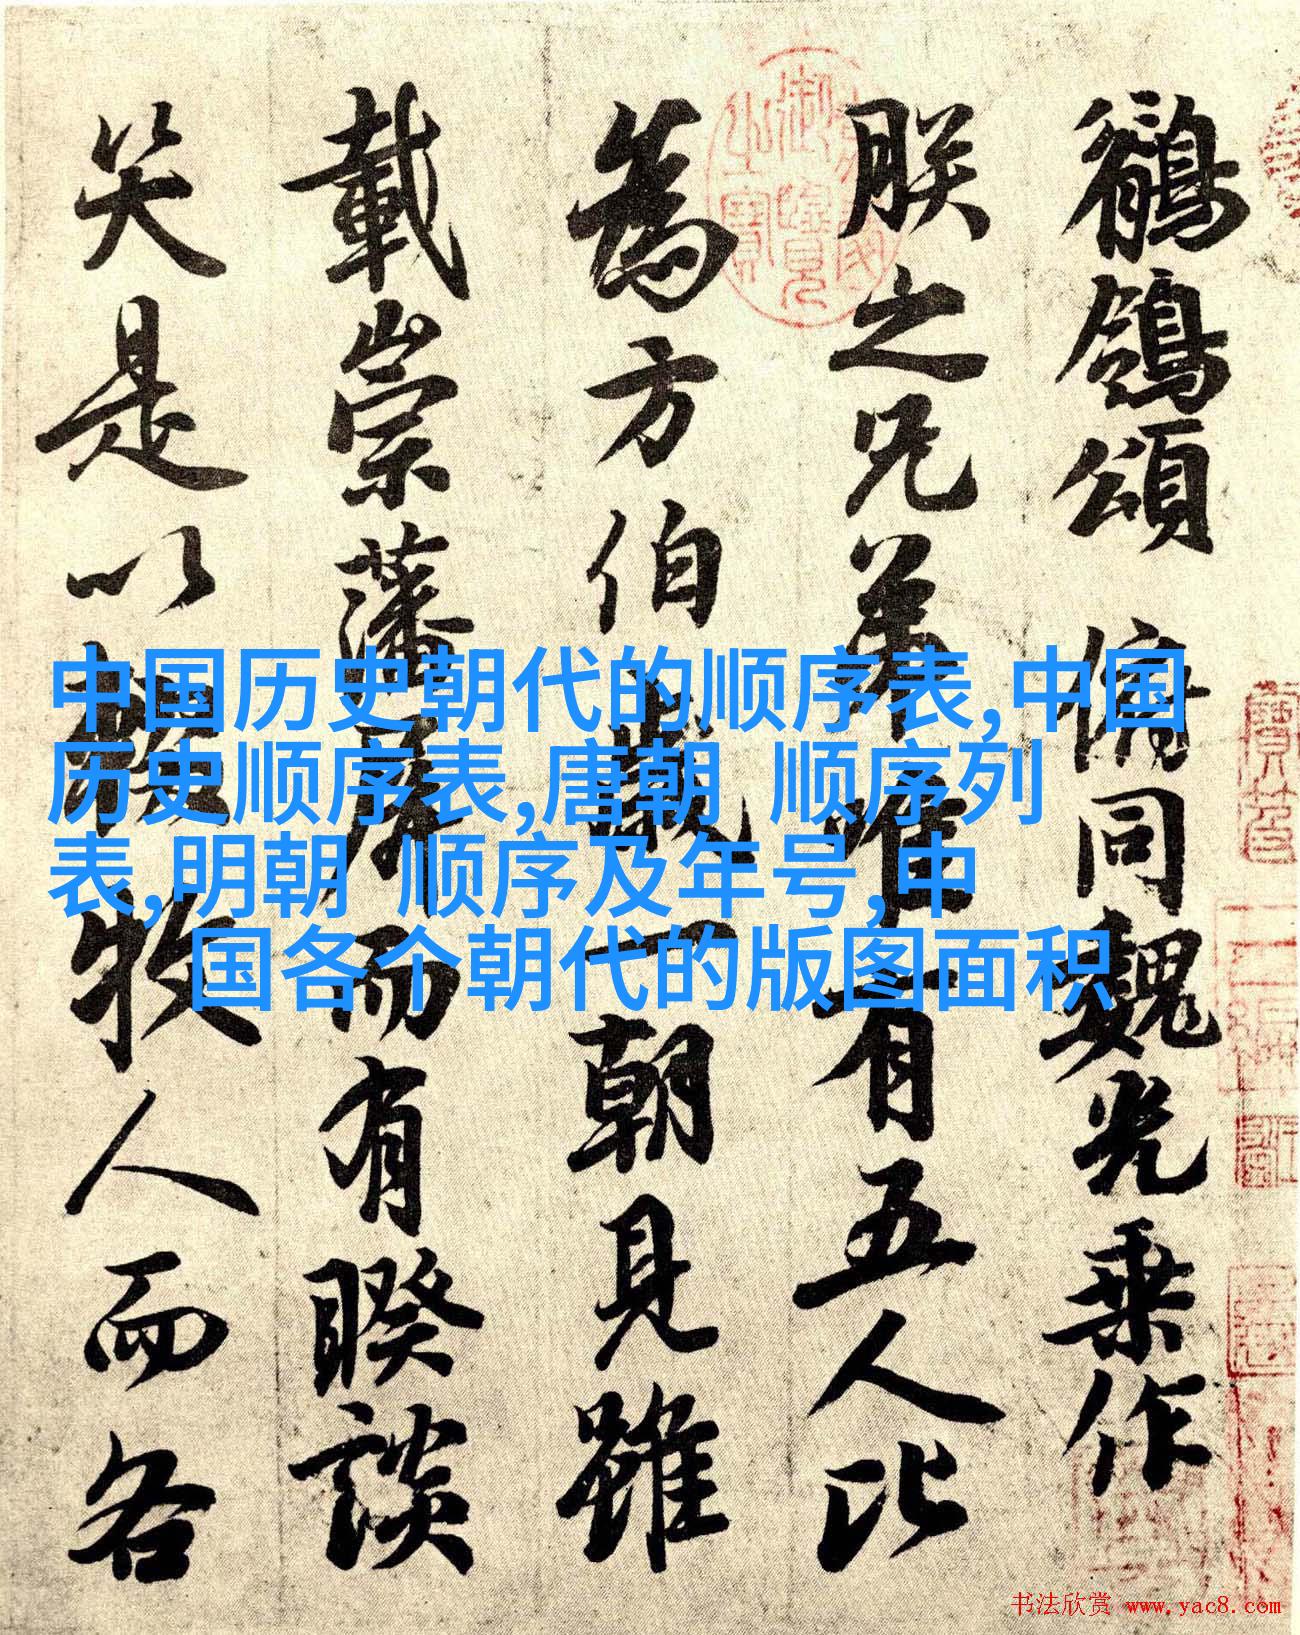 鶺鴒頌 俯同魏光乘作
朕之兄弟唯有五人比
為方伯歲一朝見雖
載崇藩屏而有睽談
笑是以輟牧人而各
中国历史朝代的顺序表,中国
历史顺序表,唐朝 顺序列
表,明朝 顺序及年号,中
国各个朝代的版图面积
书法欣赏 www.yac8.com